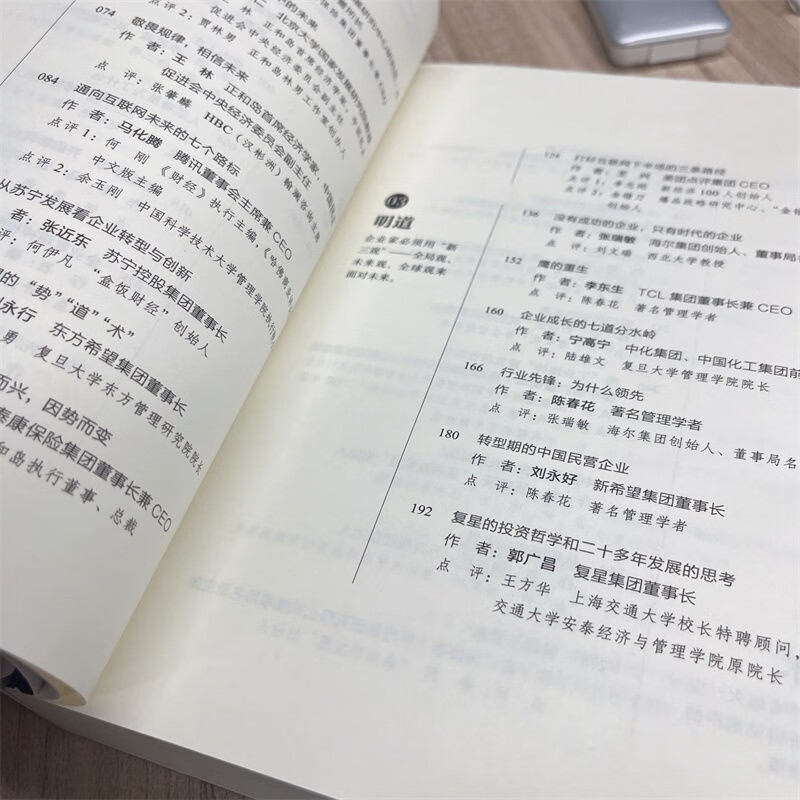 的未来
北京大学国家发展研究院
074
敬畏规律，相信未来
作 者：王 林 正和岛首席经济学家、中国
促进会中央经济委员会副主任
点 评：张肇麟 HBC（汉彬洲）
084
通向互联网未来的七个路标
作 者：马化腾 腾讯董事会主席兼CEO
点 评 1：何 刚 《财经》执行主编，《哈佛
中文版主编
点 评 2：余玉刚 中国科学技术大学管理学院执行
从苏宁发展看企业转型与创新
者：张近东 苏宁控股集团董事长
评：何伊凡 “金饭财经”创始人
的“势”“道”“术”
永行 东方希望集团董事长
勇 复旦大学东方管理研究院院长
而兴，因势而变
泰康保险集团董事长兼CEO
和岛执行董事、总裁
03
明道
企业家必须用“新
三观”——全局观、
未来观、全球观来
面对未来。
124 打好互联网下半场的三条路径
作 者：王 兴 美团点评集团CEO
新经济100人创始人
创始人
136 没有成功的企业，只有时代的企业
作 者：张瑞敏 海尔集团创始人、董事局
点 评：刘文瑞 西北大学教授
152 鹰的重生
作 者：李东生 TCL集团董事长兼CEO
点 评：陈春花 著名管理学者
160 企业成长的七道分水岭
作 者：宁高宁 中化集团、中国化工集团前
点 评：陆雄文 复旦大学管理学院院长
166 行业先锋：为什么领先
作 者：陈春花 著名管理学者
点 评：张瑞敏 海尔集团创始人、董事局名
180 转型期的中国民营企业
作 者：刘永好 新希望集团董事长
点 评：陈春花 著名管理学者
192 复星的投资哲学和二十多年发展的思考
作 者：郭广昌 复星集团董事长
点 评：王方华 上海交通大学校长特聘顾问，
交通大学安泰经济与管理学院原院长